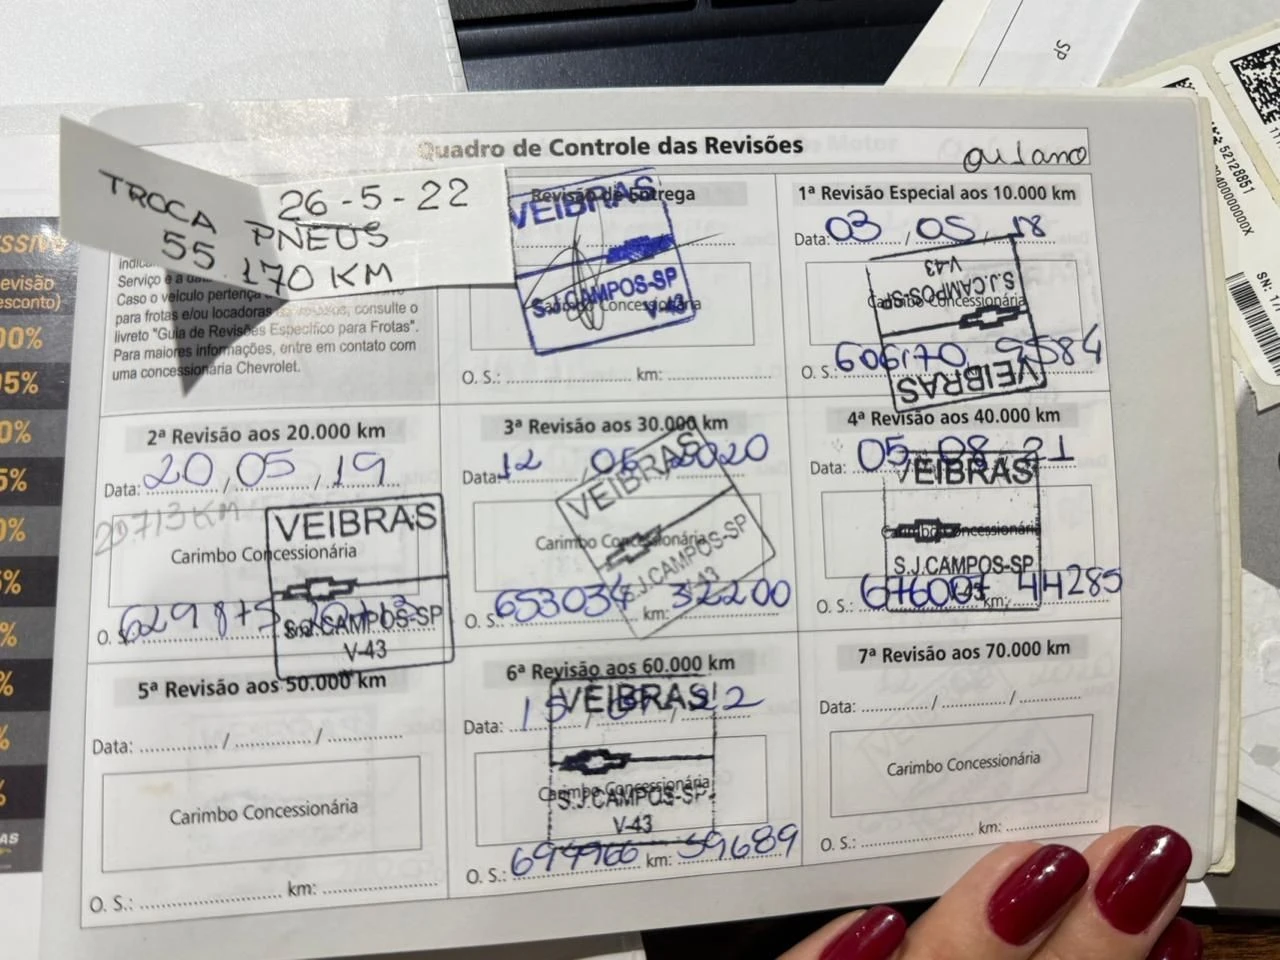 Quadro de Controle das Revisões
ou 1 ano
TROCA PNEUS
26-5-22
55.170 KM
Serviço e a
Caso o veículo pertença
para frotas e/ou locadoras consulte o
livreto "Guia de Revisões Específico para Frotas".
Para maiores informações, entre em contato com
uma concessionária Chevrolet.
Revisão de Entrega
VEIBRAS
S.J.CAMPOS-SP
V-43
Carimbo Concessionária
O. S.: km:
1ª Revisão Especial aos 10.000 km
Data: 03 / 05 / 18
V-43
S.J.CAMPOS-SP
Carimbo Concessionária
O. S.: 606170 9584
VEIBRAS
2ª Revisão aos 20.000 km
Data: 20 / 05 / 19
20713 KM
VEIBRAS
Carimbo Concessionária
O. S.: 629875 20713
S.J.CAMPOS-SP
V-43
3ª Revisão aos 30.000 km
Data: 12 05 2020
VEIBRAS
Carimbo Concessionária
S.J.CAMPOS-SP
V-43
O. S.: 653034 km: 32200
4ª Revisão aos 40.000 km
Data: 05 08 21
VEIBRAS
Carimbo Concessionária
S.J.CAMPOS-SP
V-43
O. S.: 676007 km: 44285
5ª Revisão aos 50.000 km
Data: / /
Carimbo Concessionária
O. S.: km:
6ª Revisão aos 60.000 km
Data: 15 / / 22
VEIBRAS
Carimbo Concessionária
S.J.CAMPOS-SP
V-43
O. S.: 699966 km: 59689
7ª Revisão aos 70.000 km
Data: / /
Carimbo Concessionária
O. S.: km:
SP
52128851
SN: